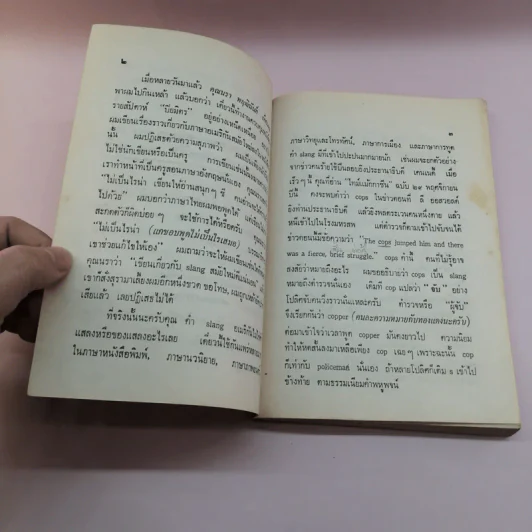 ๒
เมื่อหลายวันมาแล้ว คุณนรา
พาผมไปกินเหล้า แล้วบอกว่า เดี๋ยวนี้ทำงาน
รายสัปดาห์ "บีอมิตร" อยู่อย่างเหน็ดเหนื่อย
ผมเขียนเรื่องราวเกี่ยวกับภาษาอเมริกันสมัยใหม่
นั้น ผมปฏิเสธด้วยความสุภาพว่า ผมเป็น
ไม่ใช่นักเขียนหรือเป็นครู
เราทำหน้าที่เป็นครูสอนภาษาอังกฤษ
"ไม่เป็นไรน่า เขียนให้อ่านสนุก ๆ ซี
ไปด้วย" ผมบอกว่าภาษาไทยผมพอพูดได้
สะกดตัวก็ผิดบ่อย ๆ จะใช้การได้หรือครับ
"ไม่เป็นไรน่า (แกชอบพูดไม่เป็นไรเสมอ)
เขาช่วยแก้ไขให้เอง" ผมถามว่าจะให้ผมเขียน
คุณนราว่า "เขียนเกี่ยวกับ slang สมัยใหม่
เขาก็สั่งสุรามาเลี้ยงผมอีกหนึ่งขวด ขอโทษ, ผมถูก
เสียแล้ว เลยปฏิเสธไม่ได้
ที่จริงนั้นนะครับคุณ คำ slang อเมริกัน
แสลงหรือของแสลงอะไรเลย เดี๋ยวนี้ใช้กันแพร่หลาย
ในภาษาหนังสือพิมพ์, ภาษานวนิยาย, ภาษาภาพยนตร์
๓
ภาษาวิทยุและโทรทัศน์, ภาษาการเมือง และภาษาการทูต
คำ slang มีที่เข้าไปปะปนมากมายนัก เช่นผมจะยกตัวอย่าง
จากข่าวคนร้ายใช้ปืนลอบยิงประธานาธิบดี เคนเนดี้ เมื่อ
เร็วๆ นี้ คุณที่อ่าน "ไทม์แม๊กกาซีน" ฉบับ ๒๙ พฤศจิกายน
ปีนี้ คงจะพบคำว่า cops ในข่าวตอนที่ ลี ออสวอลด์
ยิงท่านประธานาธิบดี แล้วยิงพลตระเวนคนหนึ่งตาย แล้ว
หนีเข้าไปในโรงมหรสพ แต่ตำรวจก็ตามเข้าไปจับจนได้
ข่าวตอนนั้นมีข้อความว่า "The cops jumped him and there
was a fierce, brief struggle." cops คำนี้ คนที่ไม่รู้อาจ
สงสัยว่าหมายถึงอะไร ผมขอยอธิบายว่า cops เป็น slang
หมายถึงตำรวจนั่นเอง เดิมที cop แปลว่า "จับ" อย่าง
โปลิศจับคนวิ่งราวนั่นแหละครับ ตำรวจหรือ "ผู้จับ"
จึงเรียกกันว่า copper (คนละความหมายกับทองแดงนะครับ)
ต่อมาเข้าใจว่าเวลาพูด copper มันคงยาวไป ความนิยม
ทำให้หดสั้นลงมาเหลือเพียง cop เฉยๆ เพราะฉะนั้น cop
ก็เท่ากับ policeman นั่นเอง ถ้าหลายโปลิศก็เติม s เข้าไป
ข้างท้าย ตามธรรมเนียมคำพหูพจน์